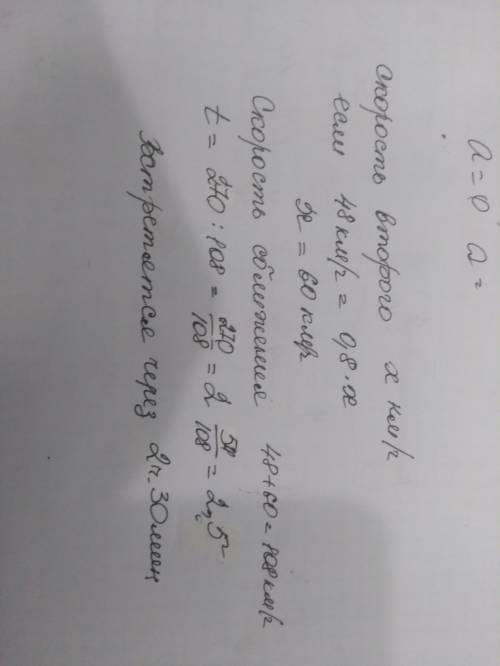 a = 0 a =
скорость второго x км/ч
если 48 км/ч = 0,8·x
x = 60 км/ч
Скорость сближения 48+60=108 км/ч
t = 270 : 108 = 270/108 = 2 54/108 = 2,5
Встретятся через 2ч. 30мин